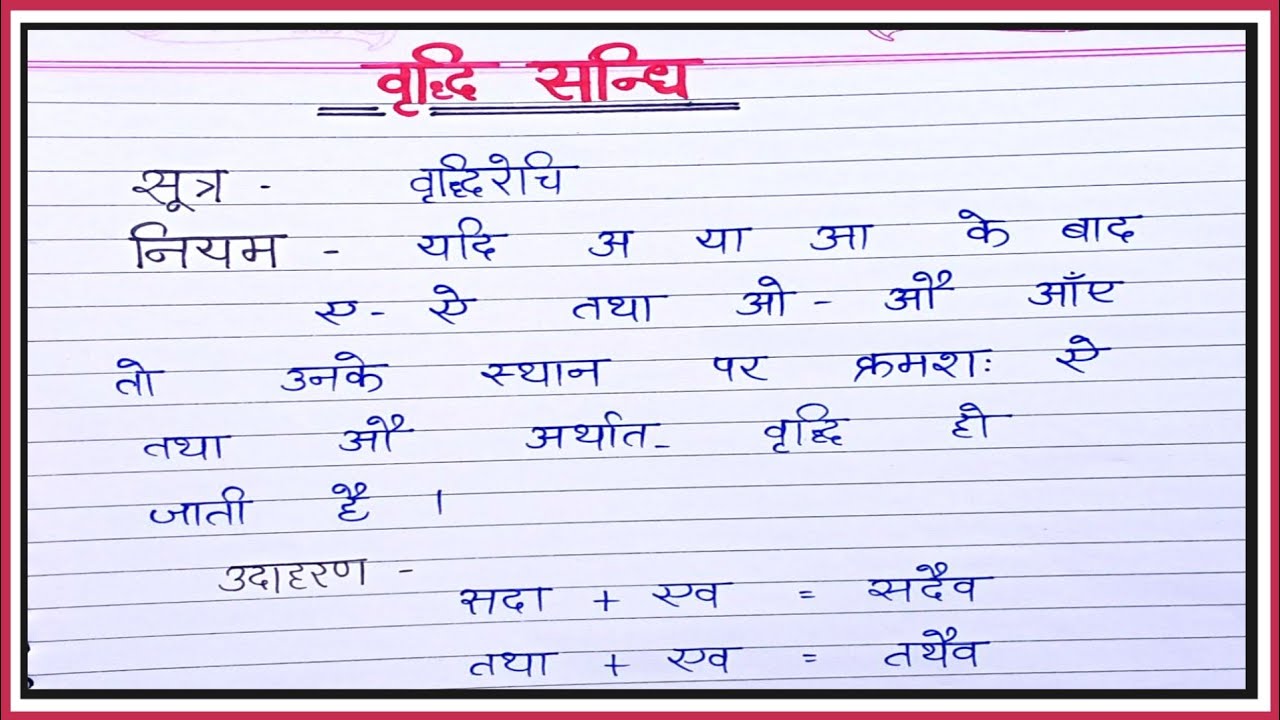 वृद्धि सन्धि
सूत्र - वृद्धिरेचि
नियम - यदि अ या आ के बाद
ए - ऐ तथा ओ - औ आँए
तो उनके स्थान पर क्रमशः ऐ
तथा औ अर्थात - वृद्धि हो
जाती है ।
उदाहरण -
सदा + एव = सदैव
तथा + एव = तथैव